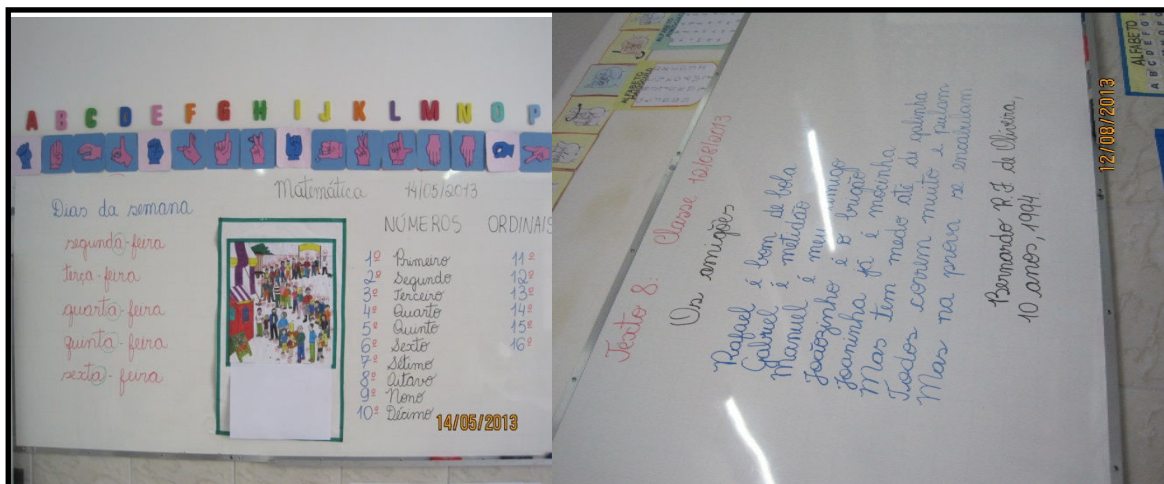 A B C D E F G H I J K L M N O P
Matemática 14/05/2013
Dias da semana
segunda-feira
terça-feira
quarta-feira
quinta-feira
sexta-feira
NÚMEROS ORDINAIS
1º Primeiro 11º
2º Segundo 12º
3º Terceiro 13º
4º Quarto 14º
5º Quinto 15º
6º Sexto 16º
7º Sétimo
8º Oitavo
9º Nono
10º Décimo
14/05/2013
Texto 8: Classe 12/08/2013
Os amigões
Rafael é bom de bola
Gabriel é metidão
Manuel é meu amigo
Joãozinho é o brigão
Joaninha já é mocinha
Mas tem medo até de galinha
Todos correm muito e pulam
Mas na prova se encabulam
Bernardo R.F. de Oliveira,
10 anos, 1994.
12/08/2013
ALFABETO